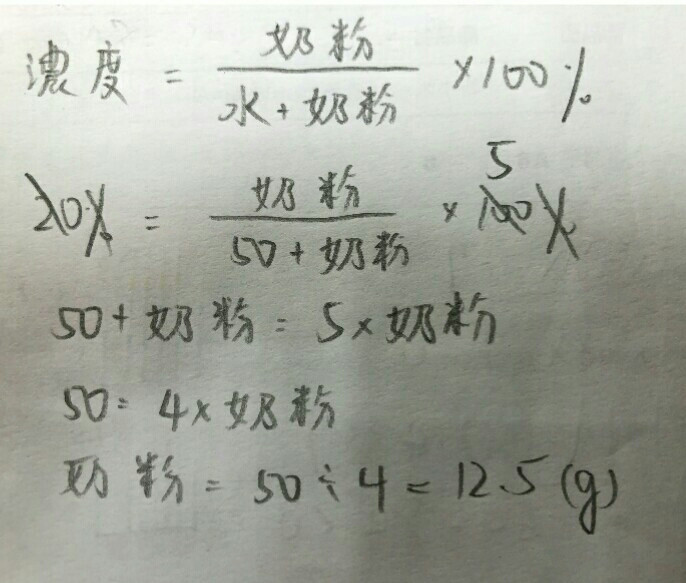 濃度 = 奶粉 / 水+奶粉 ×100%
20% = 奶粉 / 50+奶粉 ×100% 5
50+奶粉=5×奶粉
50=4×奶粉
奶粉=50÷4=12.5(g)